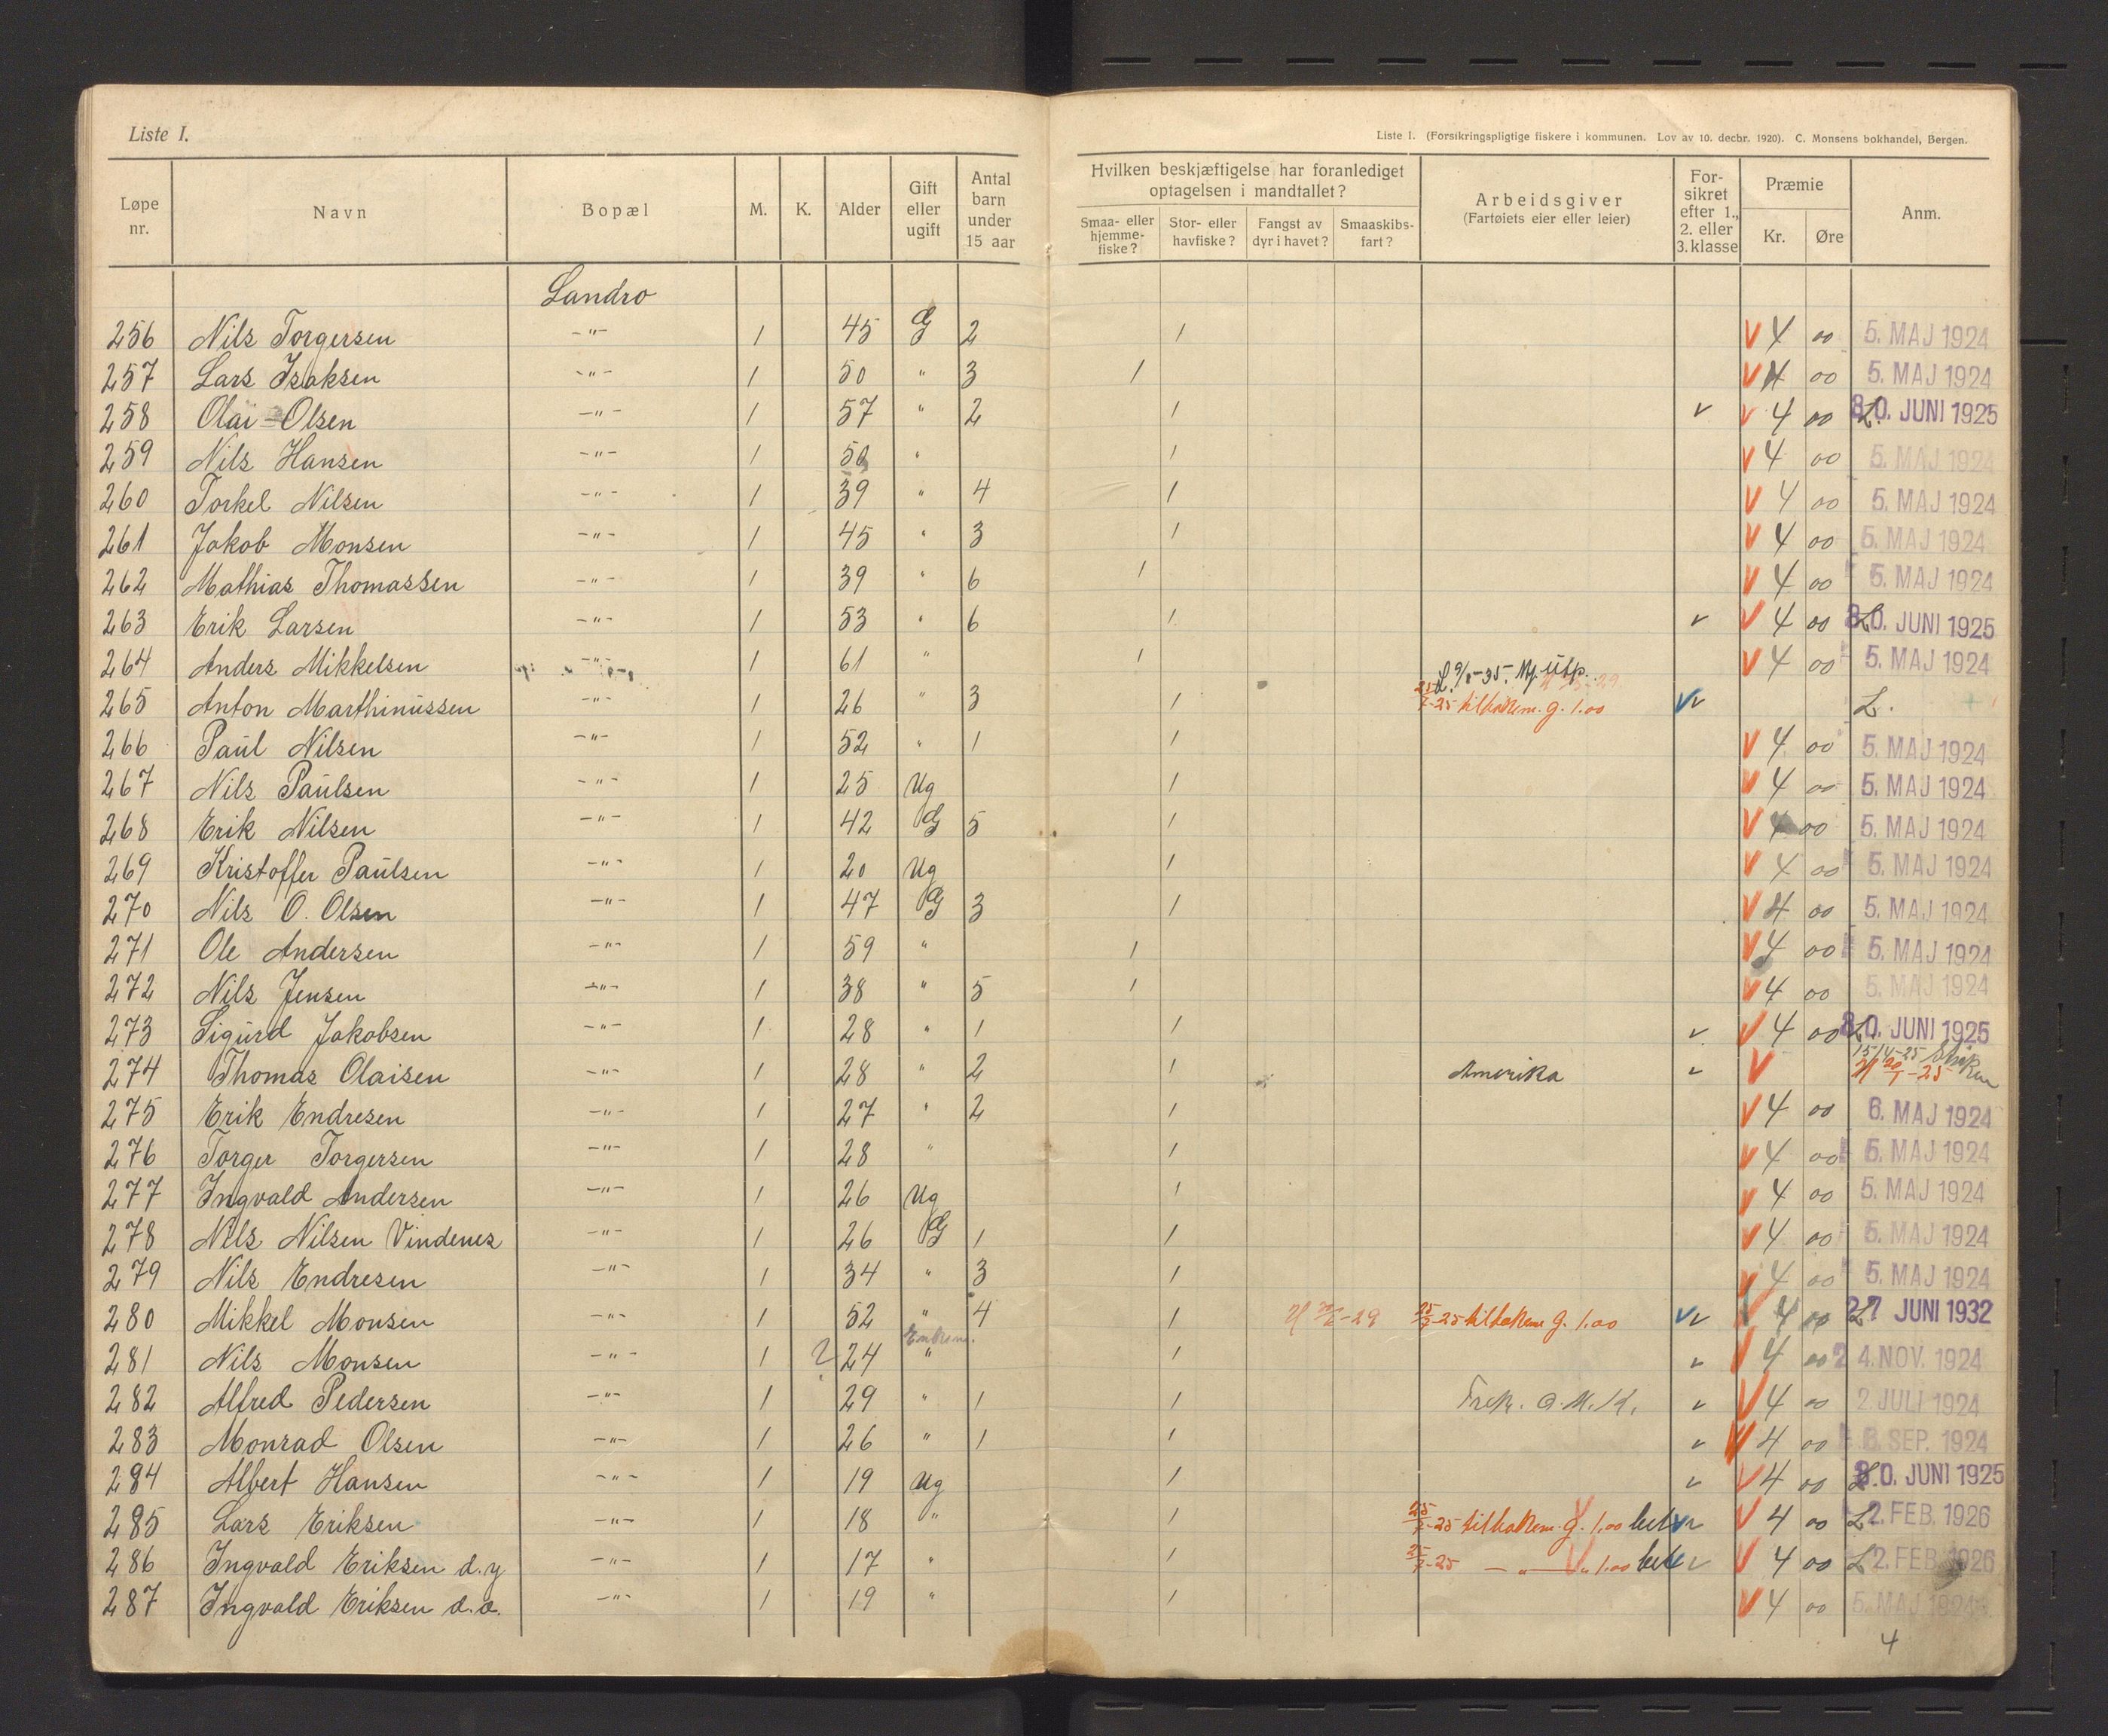 Liste I.
Liste I. (Forsikringspligtige fiskere i kommunen. Lov av 10. decbr. 1920). C. Monsens bokhandel, Bergen.
Løpe nr. Navn Bopæl M. K. Alder Gift eller ugift Antal barn under 15 aar Hvilken beskjæftigelse har foranlediget optagelsen i mandtallet? Smaa- eller hjemmefiske? Stor- eller havfiske? Fangst av dyr i havet? Smaaskibsfart? Arbeidsgiver (Fartøiets eier eller leier) Forsikret efter 1., 2. eller 3. klasse Præmie Kr. Øre Anm.
Landro
256 Nils Torgersen -"- 1 45 G 2 1 V 4 00 5. MAJ 1924
257 Lars Isaksen -"- 1 50 " 3 1 V 4 00 5. MAJ 1924
258 Olai-Olsen -"- 1 57 " 2 1 v V 4 00 L. 30. JUNI 1925
259 Nils Hansen -"- 1 50 " 1 V 4 00 5. MAJ 1924
260 Torkel Nilsen -"- 1 39 " 4 1 V 4 00 5. MAJ 1924
261 Jakob Monsen -"- 1 45 " 3 1 V 4 00 5. MAJ 1924
262 Mathias Thomassen -"- 1 39 " 6 1 V 4 00 5. MAJ 1924
263 Erik Larsen -"- 1 53 " 6 1 v V 4 00 L. 30. JUNI 1925
264 Anders Mikkelsen -"- 1 61 " 1 V 4 00 5. MAJ 1924
265 Anton Marthinussen -"- 1 26 " 3 1 25/7-25 tilbakem. g. 1.00 Vv L.
266 Paul Nilsen -"- 1 52 " 1 1 V 4 00 5. MAJ 1924
267 Nils Paulsen -"- 1 25 Ug 1 V 4 00 5. MAJ 1924
268 Erik Nilsen -"- 1 42 G 5 1 V 4 00 5. MAJ 1924
269 Kristoffer Paulsen -"- 1 20 Ug 1 V 4 00 5. MAJ 1924
270 Nils O. Olsen -"- 1 47 G 3 1 V 4 00 5. MAJ 1924
271 Ole Andersen -"- 1 59 " 1 V 4 00 5. MAJ 1924
272 Nils Jensen -"- 1 38 " 5 1 V 4 00 5. MAJ 1924
273 Sigurd Jakobsen -"- 1 28 " 1 1 v V 4 00 L. 30. JUNI 1925
274 Thomas Olaisen -"- 1 28 " 2 1 Amerika v V 15/4-25
275 Erik Endresen -"- 1 27 " 2 1 V 4 00 6. MAJ 1924
276 Torger Torgersen -"- 1 28 " 1 V 4 00 5. MAJ 1924
277 Ingvald Andersen -"- 1 26 Ug 1 V 4 00 5. MAJ 1924
278 Nils Nilsen Vindenes -"- 1 26 G 1 1 V 4 00 5. MAJ 1924
279 Nils Endresen -"- 1 34 " 3 1 V 4 00 5. MAJ 1924
280 Mikkel Monsen -"- 1 52 " 4 1 25/7-25 tilbakem g. 1.00 Vv V 4 00 L 27 JUNI 1932
281 Nils Monsen -"- 1 2 24 Enkem. " 1 v V 4 00 24. NOV. 1924
282 Alfred Pedersen -"- 1 29 " 1 1 v V 4 00 2. JULI 1924
283 Monrad Olsen -"- 1 26 " 1 1 v V 4 00 SEP. 1924
284 Albert Hansen -"- 1 19 Ug 1 v V 4 00 30. JUNI 1925
285 Lars Eriksen -"- 1 18 " 1 25/7-25 tilbakem. g. 1.00 V 4 00 L 2. FEB. 1926
286 Ingvald Eriksen d.y -"- 1 17 " 1 25/7-25 -"- " 1.00 V 4 00 L 2. FEB. 1926
287 Ingvald Eriksen d.e. -"- 1 19 " 1 V 4 00 5. MAJ 1924
4